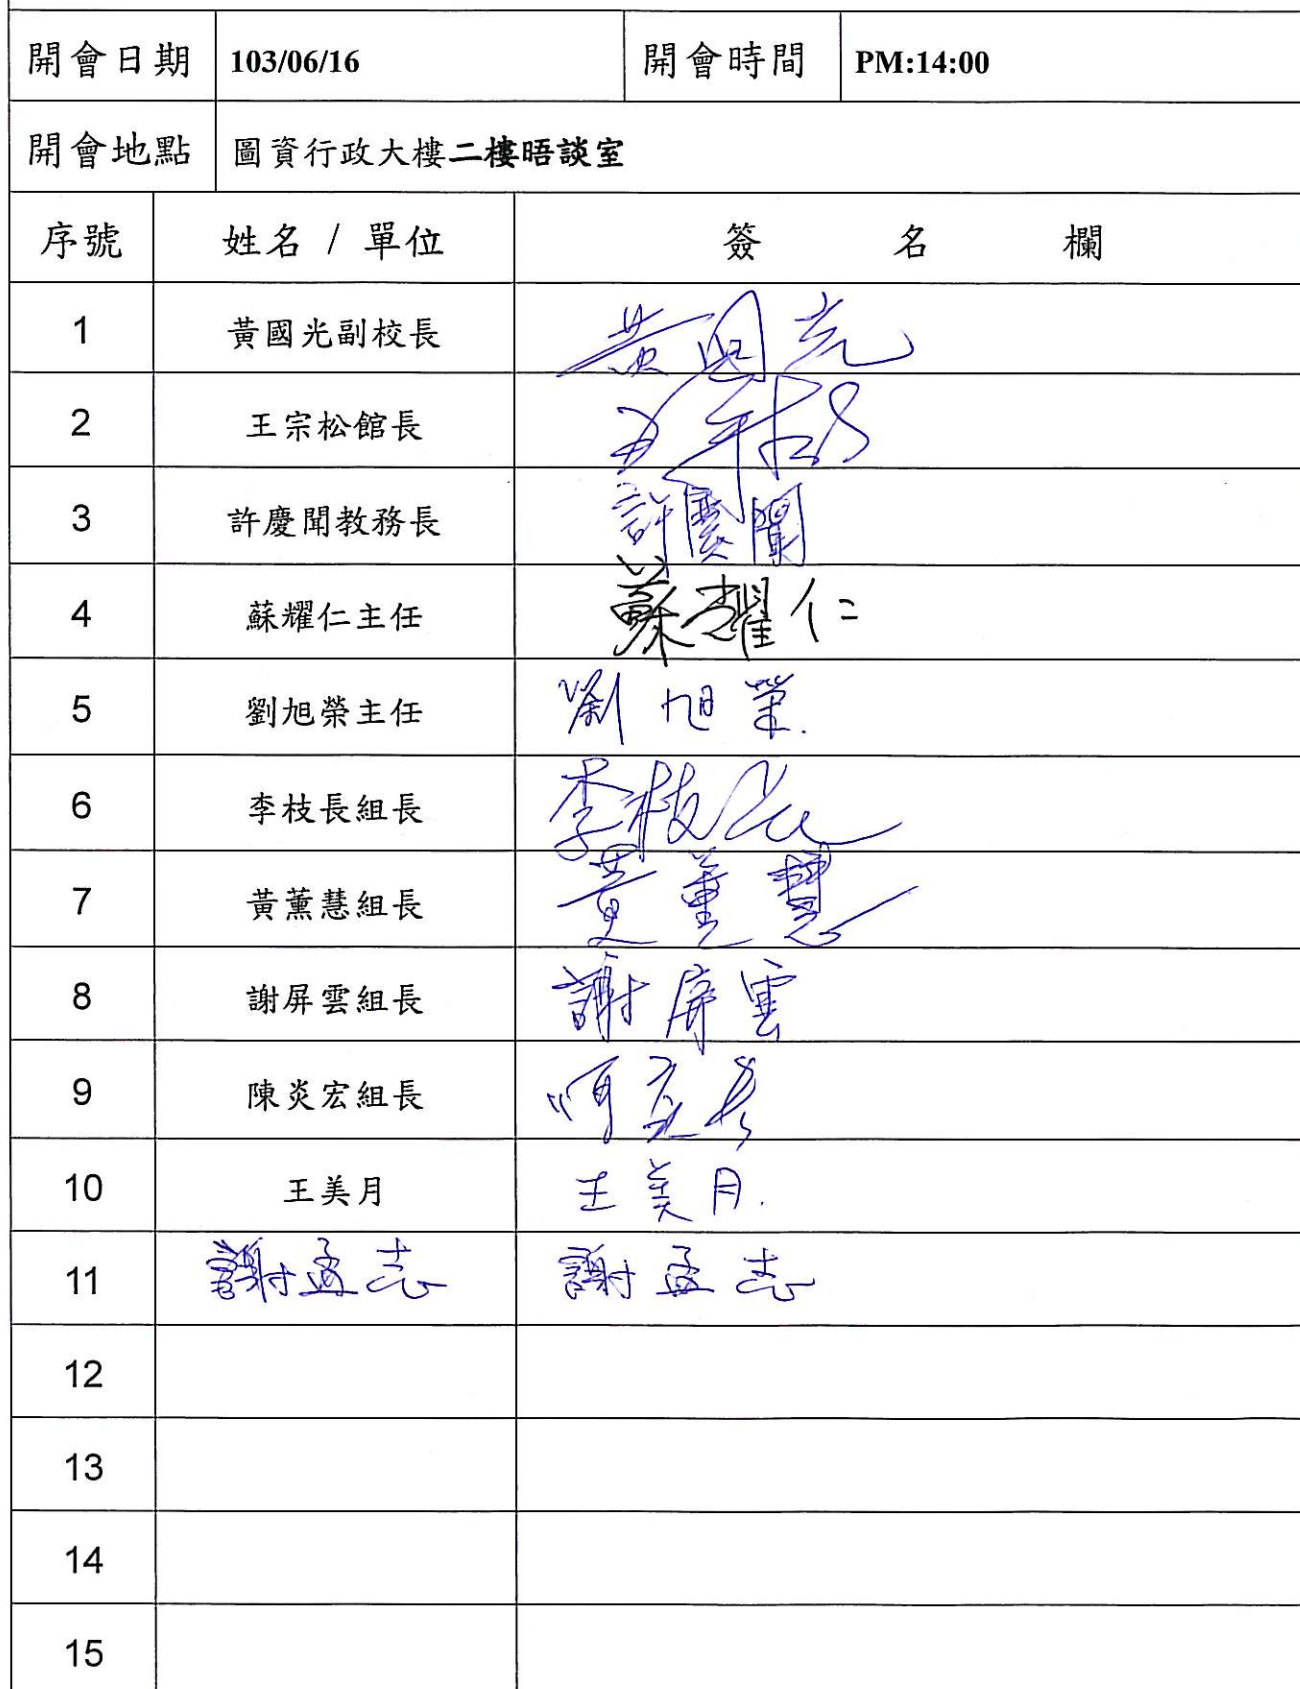 開會日期 103/06/16 開會時間 PM:14:00
開會地點 圖資行政大樓二樓晤談室
序號 姓名 / 單位 簽 名 欄
1 黃國光副校長 黃國光
2 王宗松館長
3 許慶聞教務長 許慶聞
4 蘇耀仁主任 蘇耀仁
5 劉旭榮主任 劉旭榮.
6 李枝長組長 李枝長
7 黃薰慧組長 黃薰慧
8 謝屏雲組長 謝屏雲
9 陳炎宏組長
10 王美月 王美月.
11 謝孟志 謝孟志
12
13
14
15